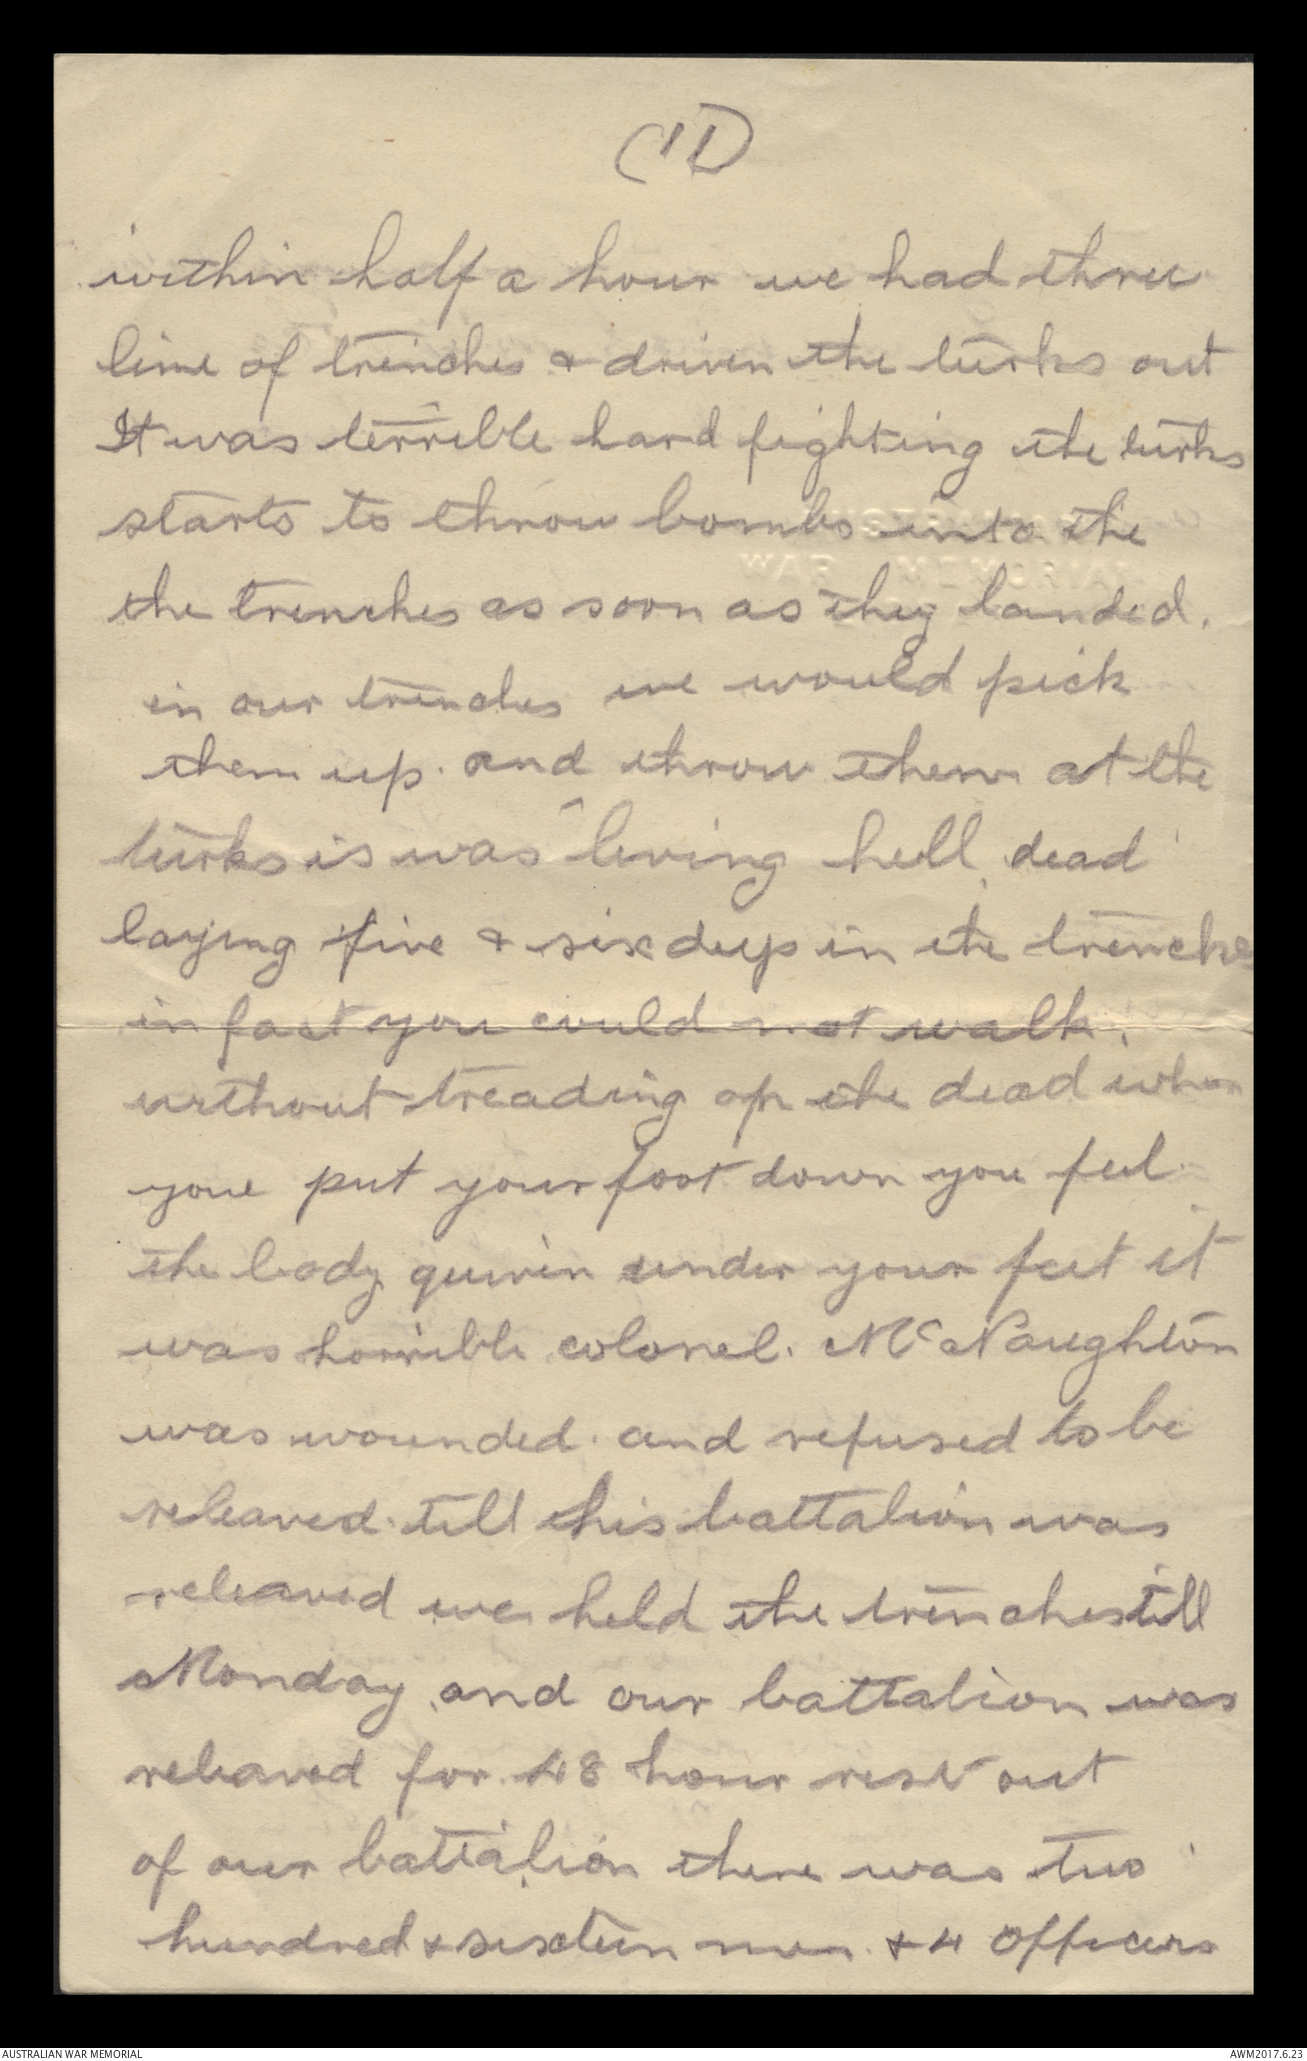 (11)
within half a hour we had three
line of trenches & driven the turks out
It was terrible hard fighting the turks
starts to throw bombs into the
the trenches as soon as they landed.
in our trenches we would pick
them up. and throw them at the
turks is was living hell, dead
laying five & six deep in the trenches
in fact you could not walk.
without treading on the dead when
youe put your foot down you feel
the body quiven under your feet it
was horrible colonel. McNaughton
was wounded. and refused to be
releaved till this battalion was
releaved we held the trenches till
Monday and our battalion was
releaved for 48 hour rest out
of our battalion there was two
hundred & sixteen men & 4 officers
AUSTRALIAN WAR MEMORIAL
AWM2017.6.23